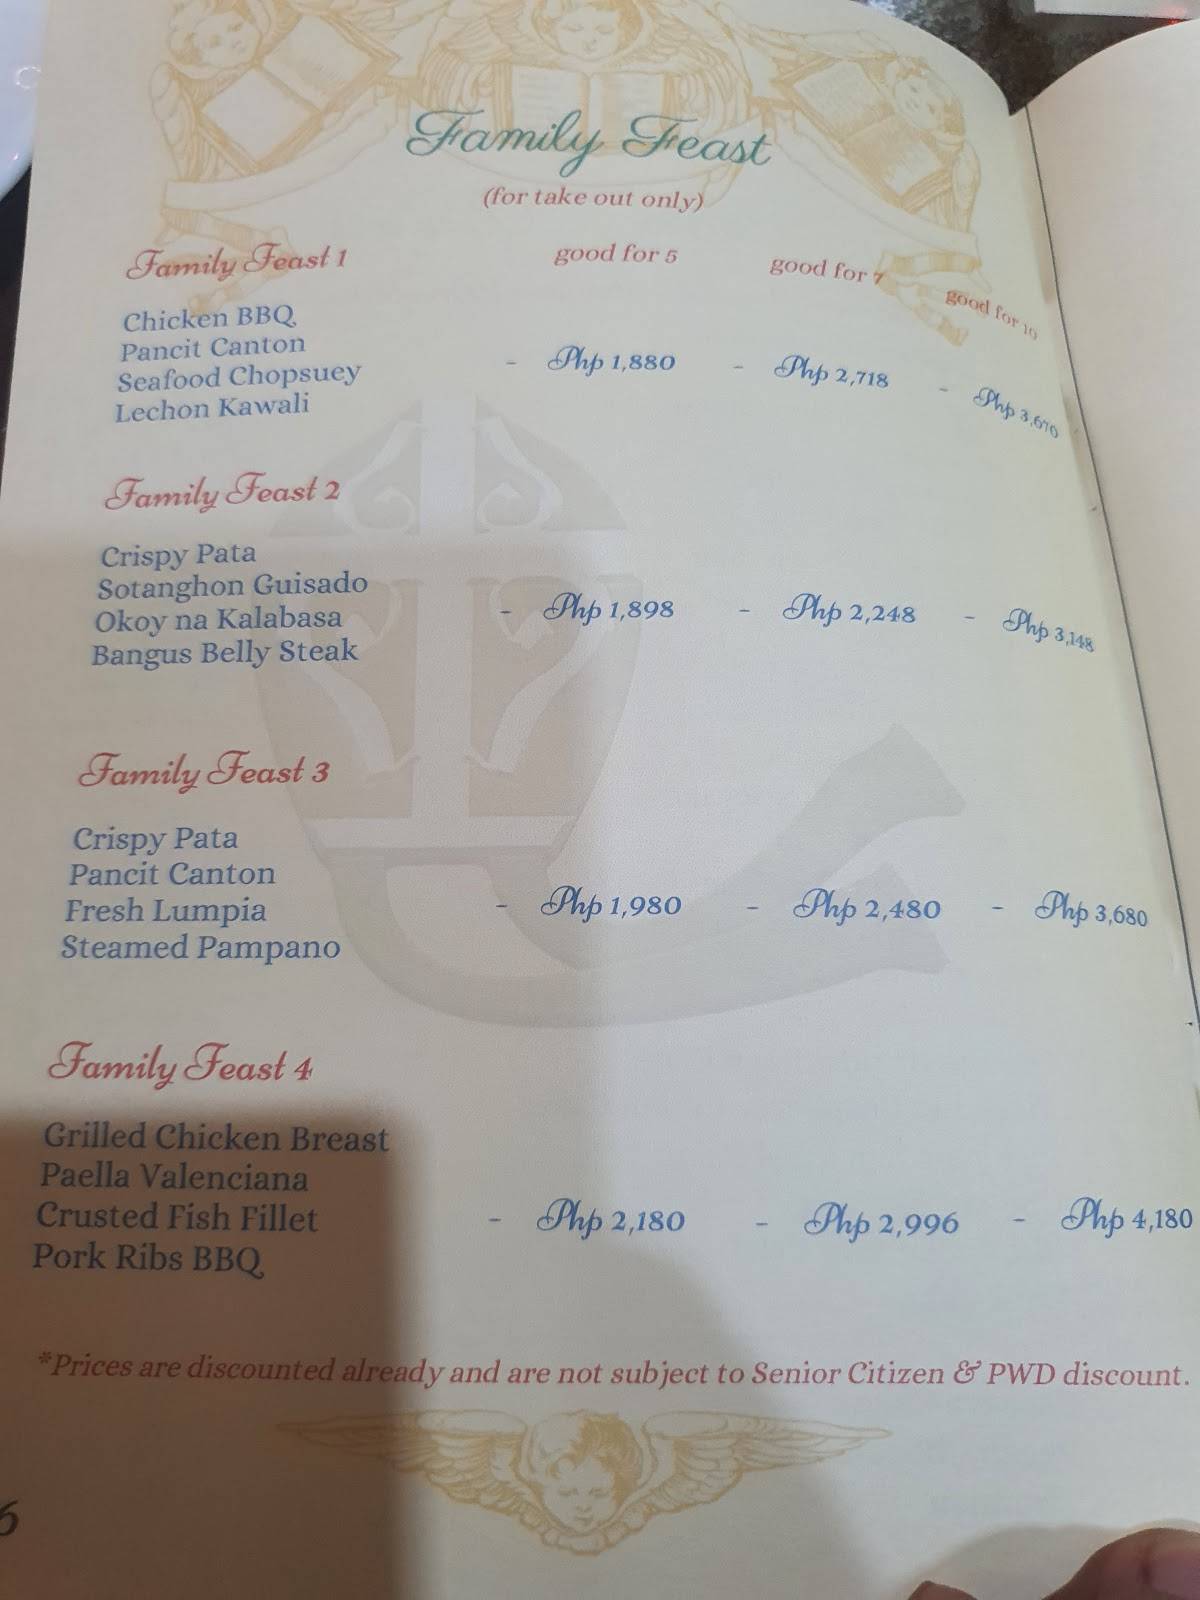 Family Feast
(for take out only)
Family Feast 1 good for 5 good for 7 good for 10
Chicken BBQ
Pancit Canton
Seafood Chopsuey
Lechon Kawali
- Php 1,880 - Php 2,718 - Php 3,670
Family Feast 2
Crispy Pata
Sotanghon Guisado
Okoy na Kalabasa
Bangus Belly Steak
- Php 1,898 - Php 2,248 - Php 3,148
Family Feast 3
Crispy Pata
Pancit Canton
Fresh Lumpia
Steamed Pampano
- Php 1,980 - Php 2,480 - Php 3,680
Family Feast 4
Grilled Chicken Breast
Paella Valenciana
Crusted Fish Fillet
Pork Ribs BBQ
- Php 2,180 - Php 2,996 - Php 4,180
*Prices are discounted already and are not subject to Senior Citizen & PWD discount.
6